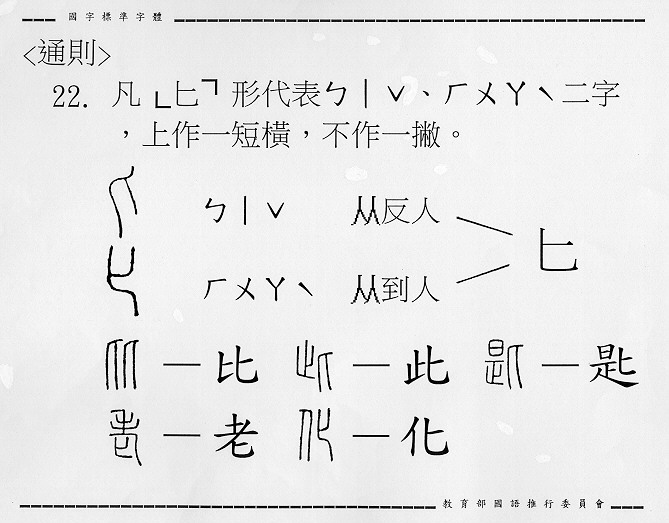 國字標準字體
<通則>
22. 凡﹂匕﹁形代表ㄅㄧˇ、ㄏㄨㄚˋ二字
，上作一短橫，不作一撇。
ㄅㄧˇ 从反人
匕
ㄏㄨㄚˋ 从到人
比 此 匙
老 化
教育部國語推行委員會